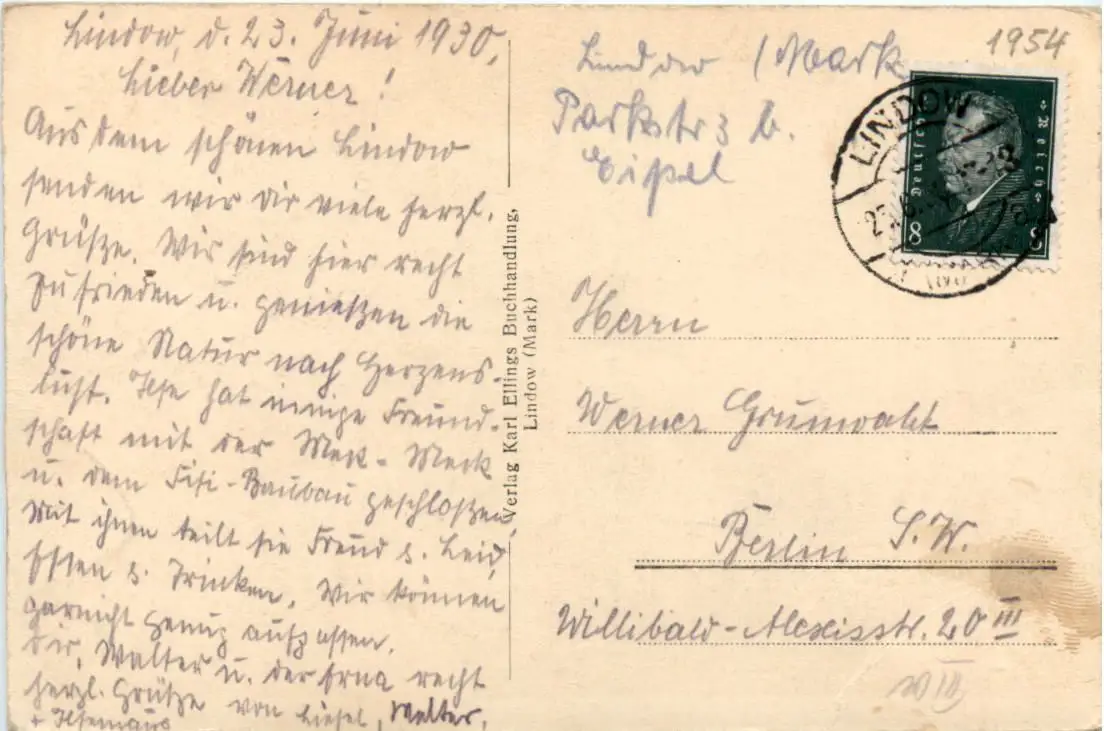 Lindow, d. 23. Juni 1930,
Lieber Werner!
Aus dem schönen Lindow
senden wir Dir viele herzl.
Grüße. Wir sind hier recht
zufrieden u. genießen die
schöne Natur nach Herzens-
lust. Ilse hat innige Freund-
schaft mit der Meck-Meck
u. dem Fifi-Baubau geschloßen.
Mit ihnen teilt sie Freud u. Leid,
Essen u. Trinken. Wir können
garnicht genug aufpassen.
Dir, Walter u. der Erna recht
herzl. Grüße von Liesel, Walter,
+ Ilsemaus
Verlag Karl Ellings Buchhandlung,
Lindow (Mark)
1954
Lindow (Mark
Parkstr 3 b.
LINDOW
Deutsches Reich
8 8
Herrn
Werner Grunwaldt
Berlin S.W.
Willibald-Alexisstr. 20 III